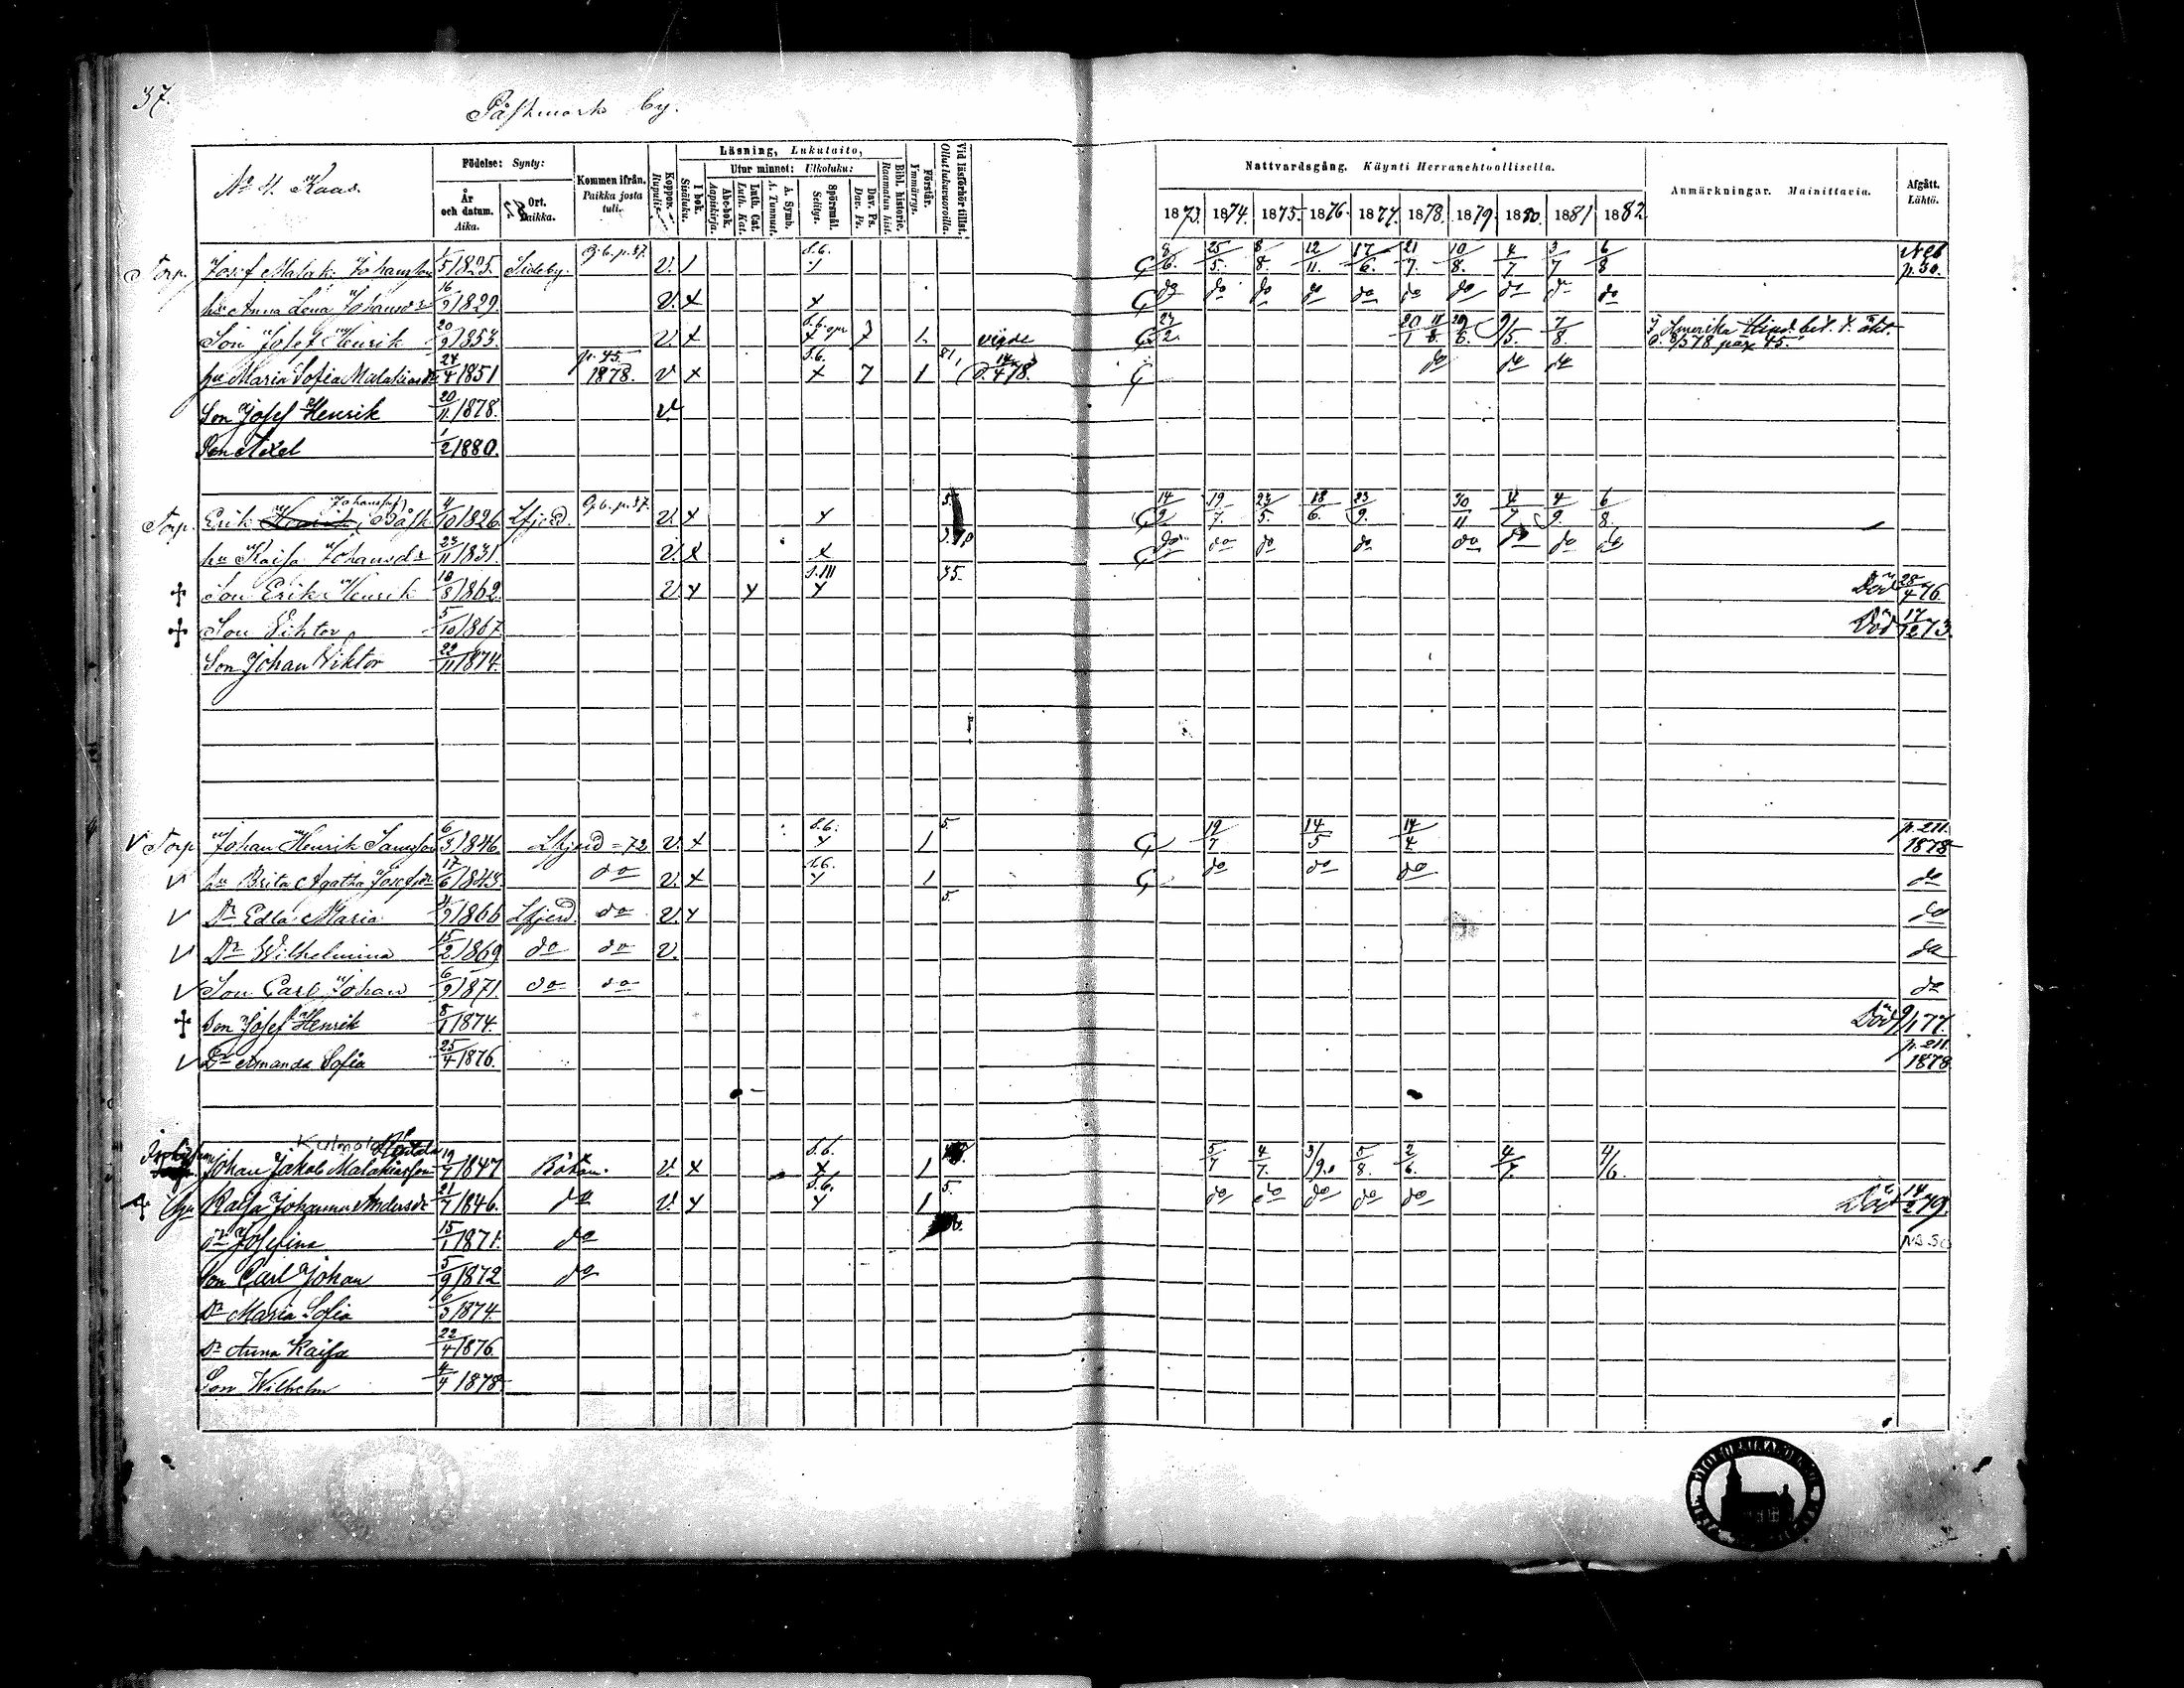 37.
Påskmark by.
No 4. Kaas.
Födelse: Synty:
År och datum. Aika.
Ort. Paikka.
Kommen ifrån. Paikka josta tuli.
Koppor. Rupulit.
Läsning, Lukutaito,
I bok. Sisäluku.
Utur minnet: Ulkoluku:
Abc-bok. Aapiskirja.
Luth. Cat. Luth. Kat.
A. Symb. A. Tunnust.
Spörsmål. Selitys.
Dav. Ps. Dav. Ps.
Bibl. historie. Raamatun hist.
Förstår. Ymmärrys.
Vid läsförhör tillst. Ollut lukuvuoroilla.
Nattvardsgång. Käynti Herranehtoollisella.
1873. 1874. 1875. 1876. 1877. 1878. 1879. 1880. 1881 1882.
Anmärkningar. Mainittavia.
Afgått. Lähtö.
Torp. Josef Malak. Johansson 5/1825. Sideby. G.b.p.37. V. 1 S.b. 9/6. 25/5. 8/8. 12/11. 17/6. 21/7. 10/8. 4/7 3/7 6/8 p.50.
hu Anna Lena Johansdr 16/9 1829. V. x x do do do do do do do do do do
Son Josef Henrik 20/9 1853. V. x S.b. x 7 1. vigde 27/2. 9/5. 7/8. I Amerika
hu Maria Sofia Malakiasdr 24/4 1851 p. 45. 1878. V x S.b. x 7 1 81, do do do
Son Josef Henrik 20/11 1878. V
Son Axel 1/2 1880.
Torp. Erik Henrik Johansson Påsk 4/10 1826. Lfjerd. G.b.p.37. V. x x 14/9. 19/7. 23/5. 18/6. 23/9. 30/11 4/7 4/9. 6/8.
hu Kaisa Johansdr 23/11 1831. V. x x do do do do do do do do
Son Erik Henrik 18/8 1862. V x x S.III x 75. Död 28/4 76.
Son Viktor 5/10 1867. Död 17/12 73.
Son Johan Viktor 22/11 1874.
V Torp Johan Henrik Samsson 6/3 1846. Lfjerd = 72 V. x S.b. x 1 5. 19/7 14/5 14/4 p. 211. 1878
V hu Brita Agatha Josefsdr 17/6 1843. do V. x S.b. x 1 do do do do
V Dr Edla Maria 9 1866 Lfjerd. do V. x 5. do
V Dr Wilhelmina 15/2 1869 do do V. do
V Son Carl Johan 6/9 1871. do do do
Son Josef Henrik 8/1 1874. Död 9/1 77.
V Dr Amanda Sofia 25/4 1876. p. 211. 1878
Johan Jakob Malakiasson 19/7 1847 V. x S.b. x 1 5/7 4/7. 3/9. 5/8. 2/6. 4/7. 4/6.
hu Kaisa Johanna Andersdr 21/7 1846. do V. x S.b. x 1 5. do do do do do Död 14/2 79.
Dr Josefina 15/1 1871. do NB 50
Son Carl Johan 5/9 1872 do
Dr Maria Sofia 6/3 1874.
Dr Anna Kaisa 22/4 1876
Son Wilhelm 4/4 1878